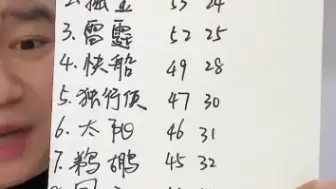 3. 雷霆 52 25
4. 快船 49 28
5. 独行侠 47 30
6. 太阳 46 31
7. 鹈鹕 45 32